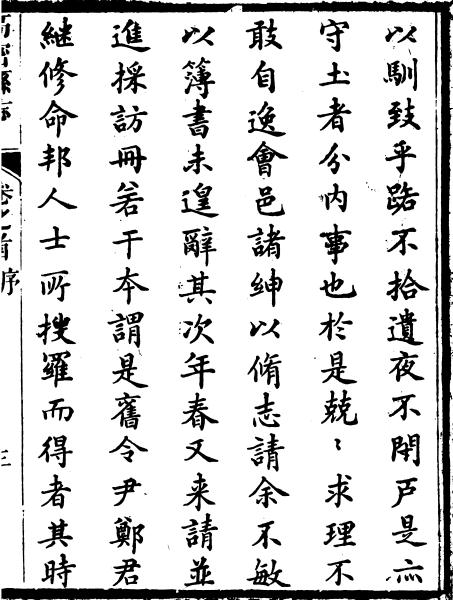 以馴致乎路不拾遺夜不閉戸是亦
守土者分内事也於是兢〻求理不
敢自逸會邑諸紳以脩志請余不敏
以簿書未遑辭其次年春又来請並
進採訪冊若干本謂是舊令尹鄭君
継修命邦人士所搜羅而得者其時
卷之首序
三